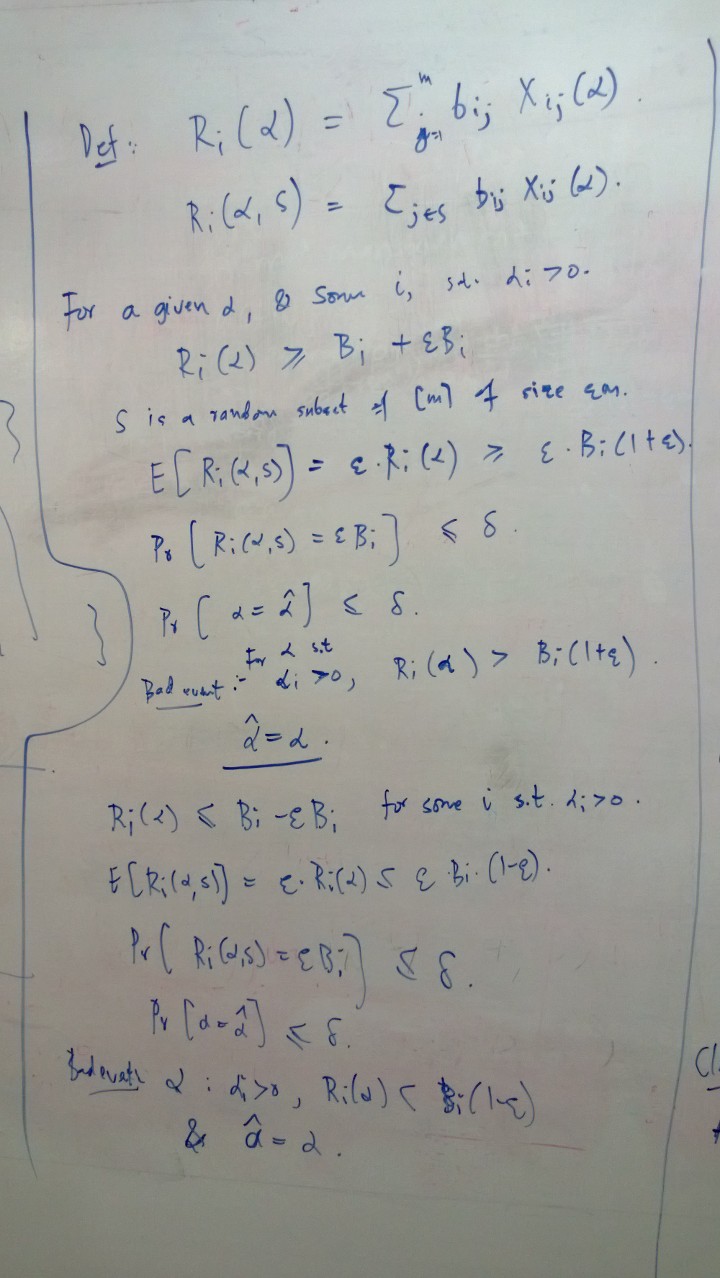 Def:- Rᵢ(α) = Σⱼ₌₁ᵐ bᵢⱼ Xᵢⱼ(α).
Rᵢ(α, S) = Σ_{j∈S} bᵢⱼ Xᵢⱼ(α).
For a given α, & some i, s.t. αᵢ > 0.
Rᵢ(α) ⩾ Bᵢ + εBᵢ
S is a random subset of [m] of size εm.
E[Rᵢ(α,S)] = ε·Rᵢ(α) ⩾ ε·Bᵢ(1+ε).
Pr[Rᵢ(α,S) = εBᵢ] ≤ δ.
Pr[α = α̂] ≤ δ.
For α s.t
Bad event:- αᵢ > 0, Rᵢ(α) > Bᵢ(1+ε).
α̂ = α.
Rᵢ(α) ≤ Bᵢ - εBᵢ for some i s.t. αᵢ > 0.
E[Rᵢ(α,S)] = ε·Rᵢ(α) ≤ ε·Bᵢ·(1-ε).
Pr[Rᵢ(α,S) = εBᵢ] ≤ δ.
Pr[α = α̂] ≤ δ.
α : αᵢ > 0, Rᵢ(α) < Bᵢ(1-ε)
& α̂ = α.